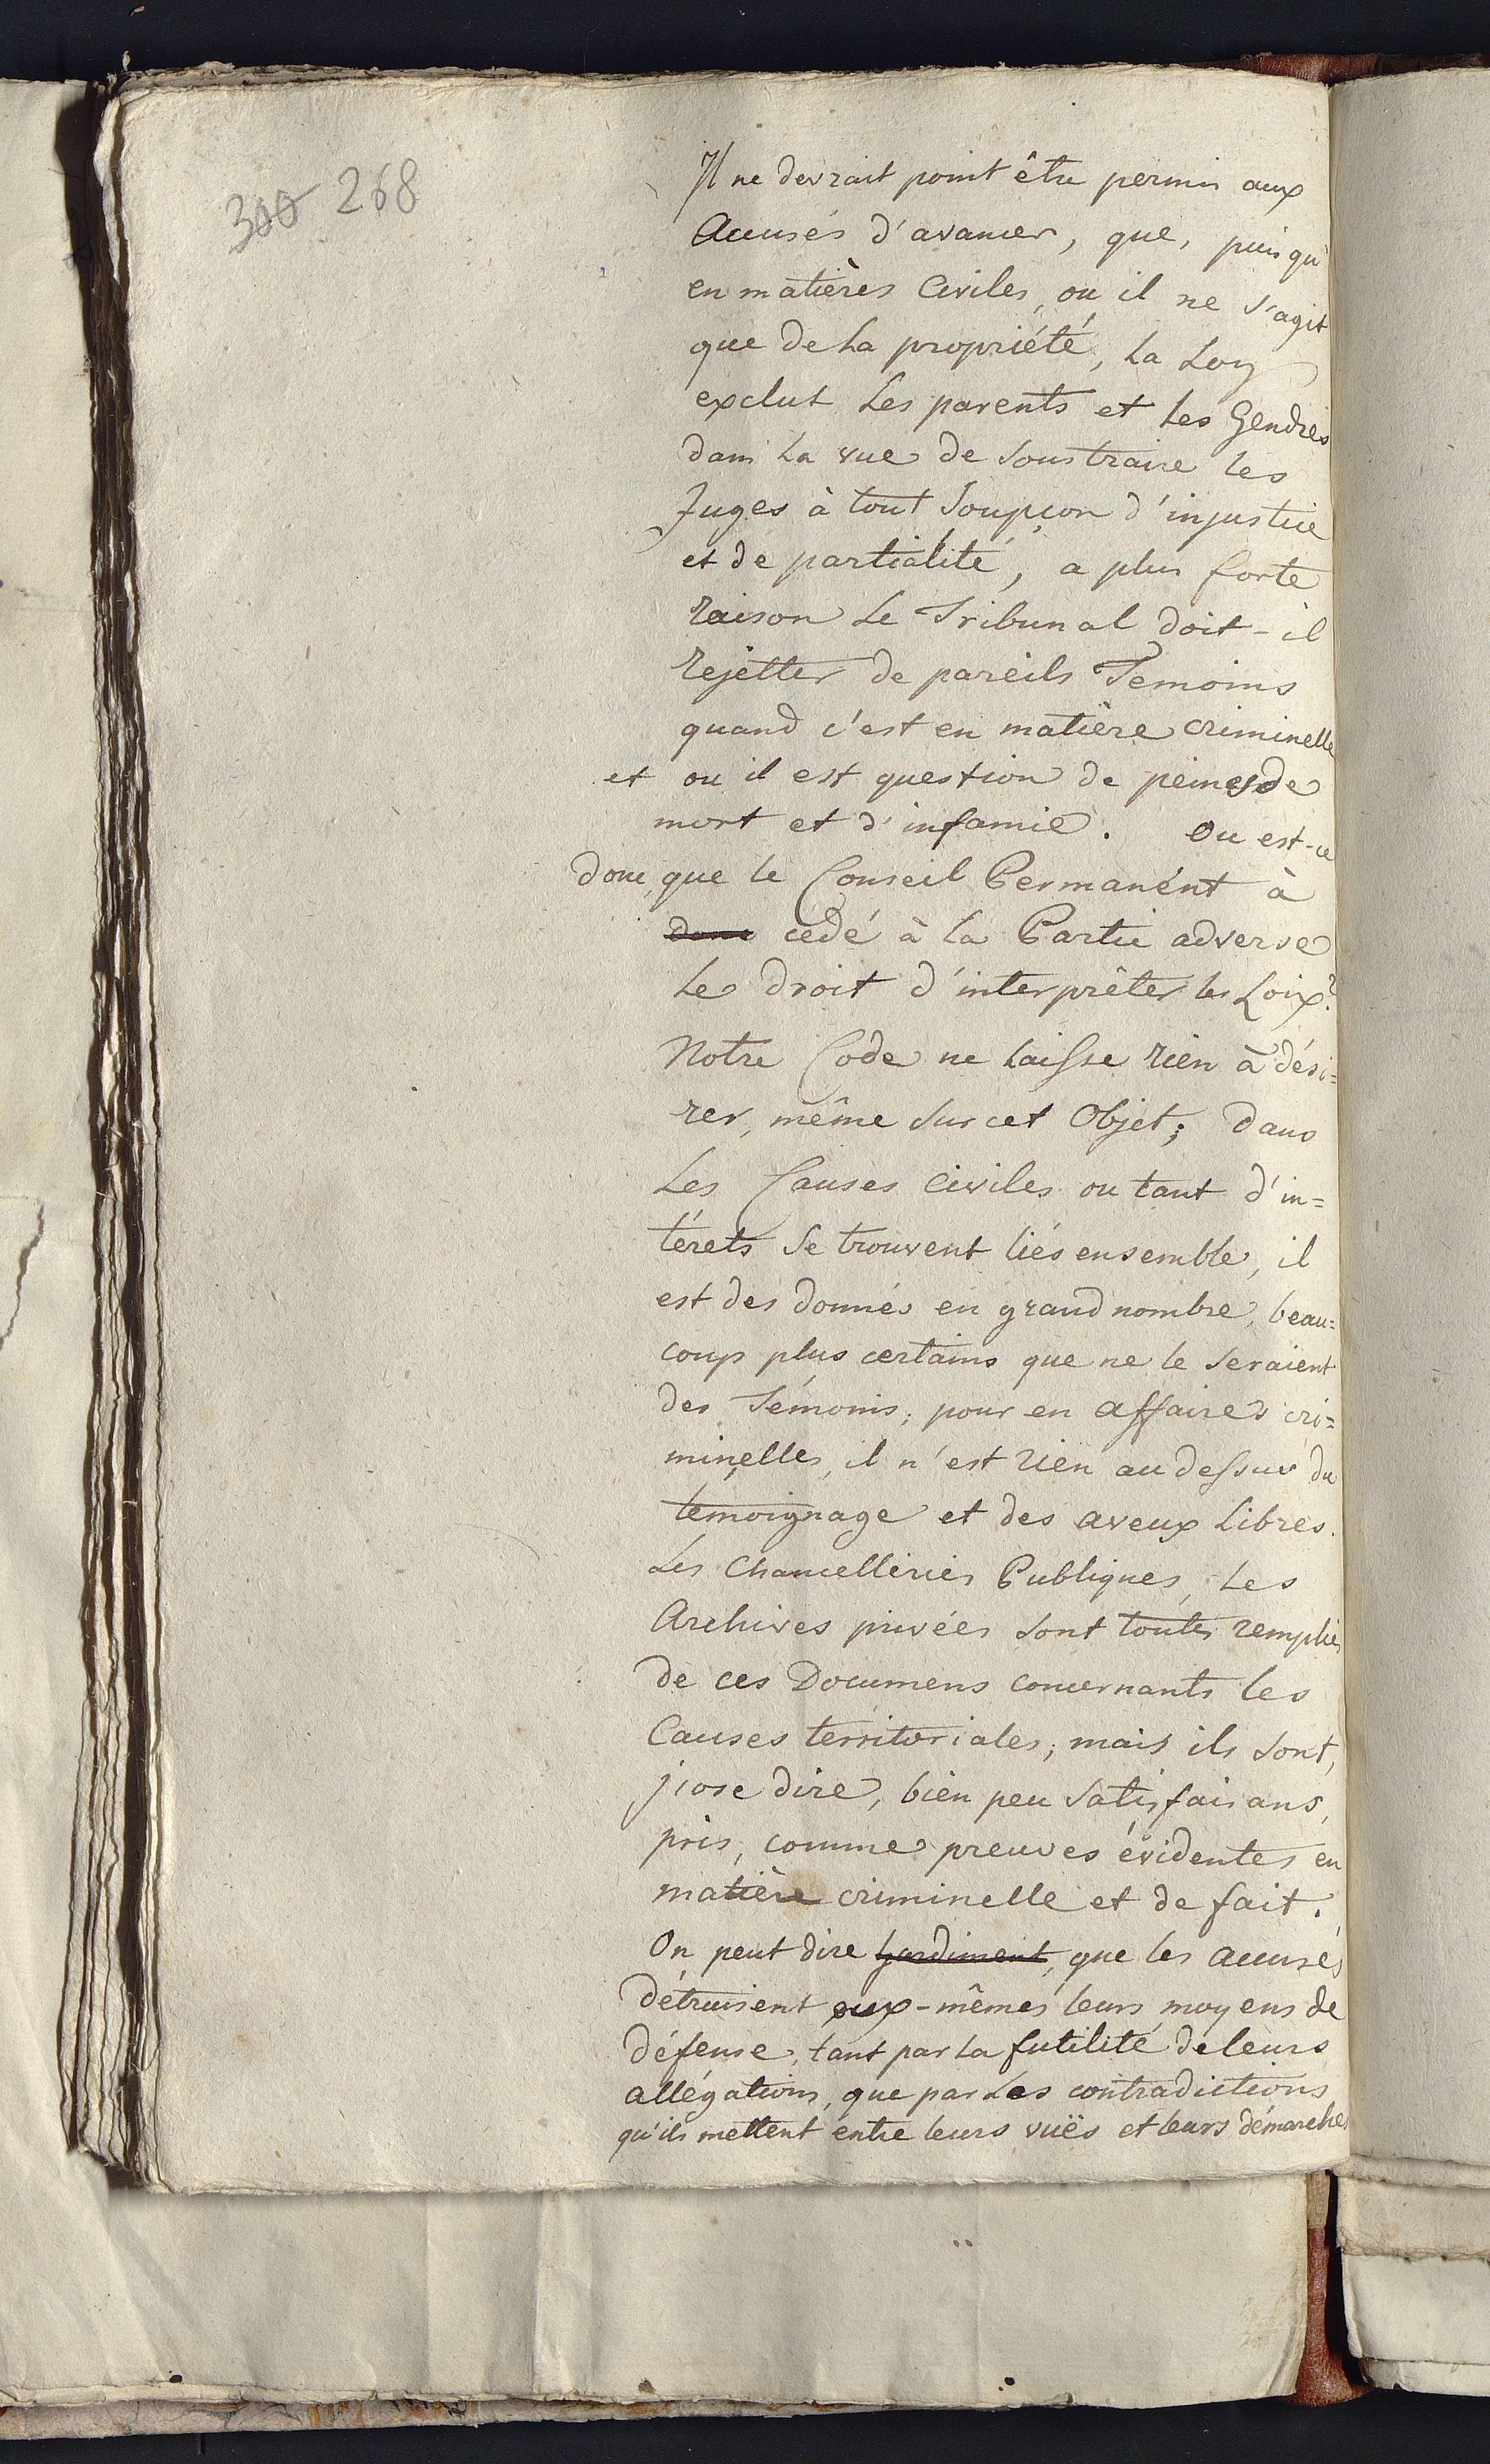 300 268
Il ne devrait point être permis aux
Accusés d'avancer, que, puisqu'
en matières Civiles, ou il ne s'agit
que de La propriété, La Loy
exclut Les parents et Les Gendres
dans La vue de soustraire les
Juges à tout Soupçon d'injustice
et de partialité, a plus forte
raison Le Tribunal doit-il
rejetter de pareils Temoins
quand c'est en matière criminelle
et ou il est question de peines de
mort et d'infamie. Ou est-ce
donc, que le Conseil Permanent à
donc cedé à la Partie adverse
Le droit d'interprêter les Loix?
Notre Code ne Laisse rien à dési=
rer, même sur cet Objet; Dans
Les Causes Civiles ou tant d'in=
térets se trouvent liés ensemble, il
est des donnés en grand nombre, beau=
coup plus certains que ne le seraient
des Témoins; pour en affaires cri=
minelles, il n'est rien au dessus du
temoignage et des aveux Libres.
Les Chancelleries Publiques, Les
Archives privées sont toutes remplies
de ces Documens concernants les
Causes territoriales; mais ils sont,
j'ose dire, bien peu satisfaisans,
pris, comme preuves évidentes en
matière criminelle et de fait.
On peut dire hardiment, que les accusés
détruisent eux-mêmes leurs moyens de
défense, tant par La futilité de leurs
allégations, que par Les contradictions
qu'ils mettent entre leurs vuës et leurs démarches